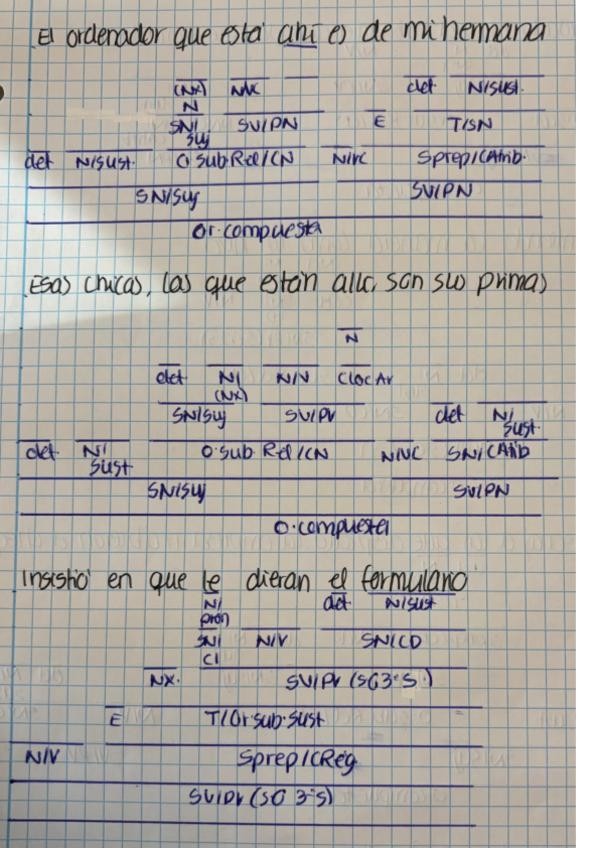 El ordenador que está ahí es de mi hermana
(NX) N/VC det N/sust.
N
SN/ SV/PN E T/SN
Suj
det N/sust. O sub Rel/CN N/VC Sprep/CAtrib.
SN/Suj SV/PN
Or. compuesta
Esas chicas, las que están allí, son sus primas
N
det N/ N/V CLocAr
(NX)
SN/Suj SV/PV det N/
sust.
det N/ O sub Rel/CN N/VC SN/CAtrib
sust
SN/Suj SV/PN
O. compuesta
Insistió en que le dieran el formulario
N/ det N/sust
pron
SN/ N/V SN/CD
CI
NX. SV/PV (SG 3ªS.)
E T/Or sub. sust
N/V Sprep/CReg
SV/PV (SO 3ªS)